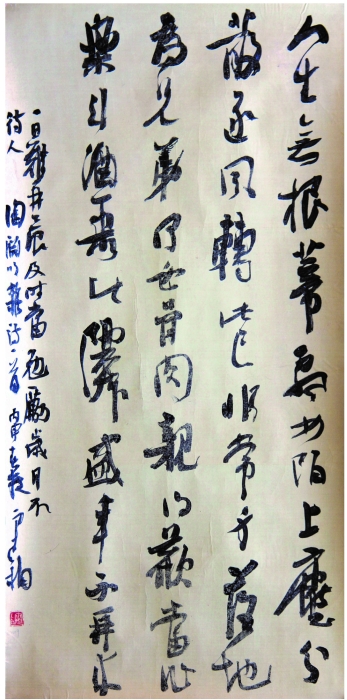 人生無根蒂飄如陌上塵分
散逐風轉此已非常身落地
為兄弟何必骨肉親得歡當作
樂斗酒聚比隣盛年不重来
一日難再晨及时當勉勵歲月不
待人 陶淵明雜诗一首 丙申夏